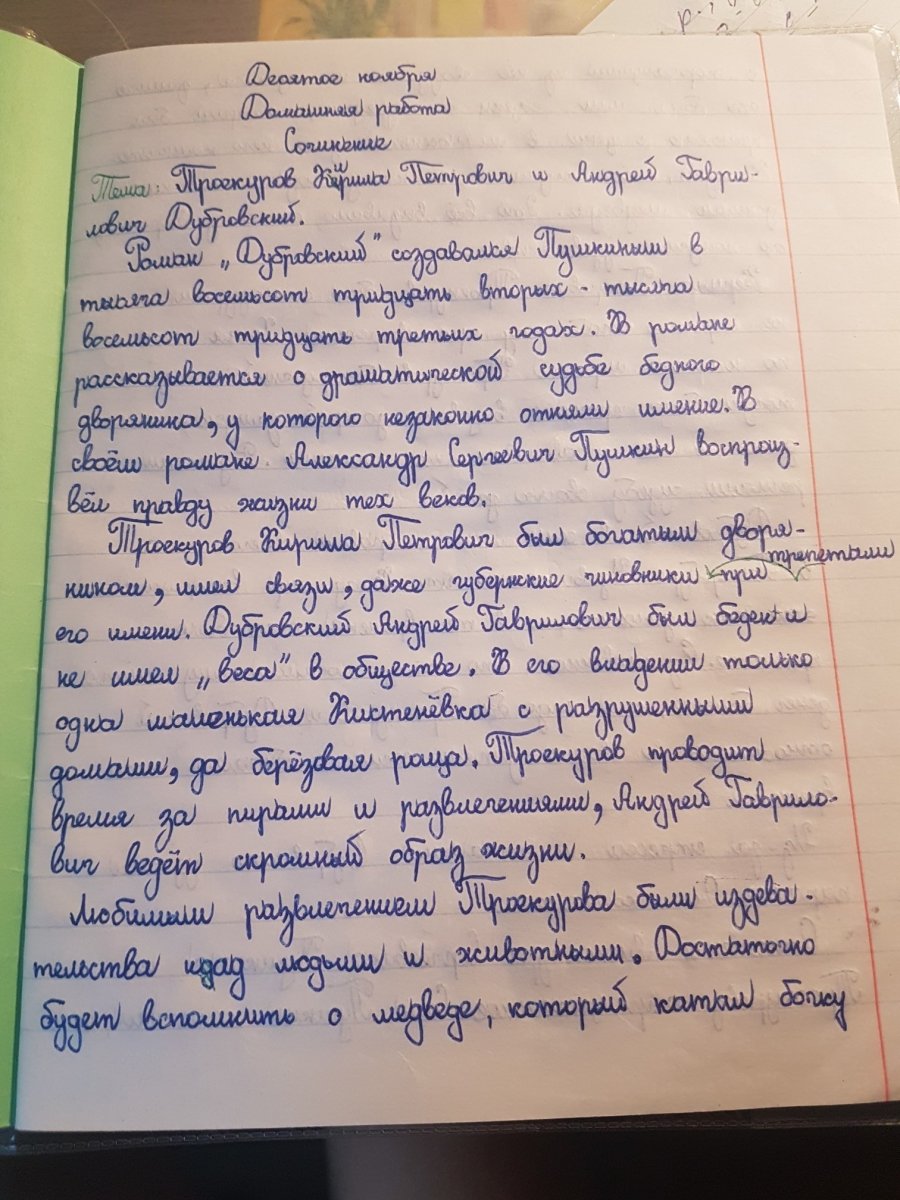 Десятое ноября
Домашняя работа
Сочинение
Тема: Троекуров Кирила Петрович и Андрей Гаври-
лович Дубровский.
Роман „Дубровский" создавался Пушкиным в
тысяча восемьсот тридцать вторых - тысяча
восемьсот тридцать третьих годах. В романе
рассказывается о драматической судьбе бедного
дворянина, у которого незаконно отняли имение. В
своём романе Александр Сергеевич Пушкин воспроиз-
вёл правду жизни тех веков.
Троекуров Кирила Петрович был богатым дворя-
нином, имел связи, даже губернские чиновники трепетали при
его имени. Дубровский Андрей Гаврилович был беден и
не имел „веса" в обществе. В его владении только
одна маленькая Кистенёвка с разрушенными
домами, да берёзовая роща. Троекуров проводит
время за пирами и развлечениями, Андрей Гаврило-
вич ведёт скромный образ жизни.
Любимым развлечением Троекурова были издева-
тельства над людьми и животными. Достаточно
будет вспомнить о медведе, который катал бочку